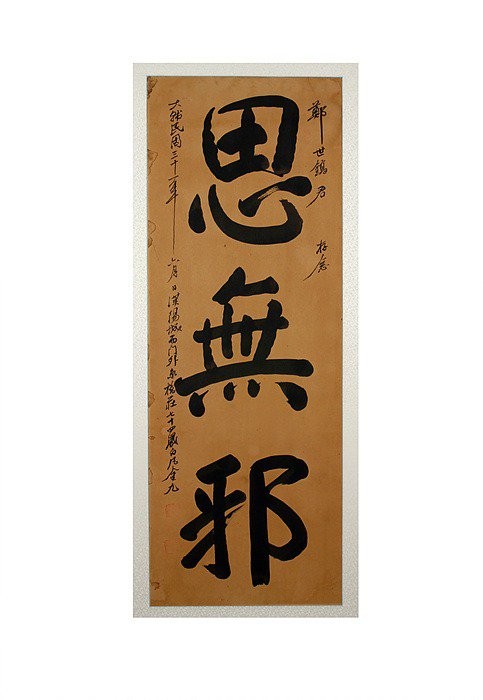 鄭世鎬君 存念
思無邪
大韓民國三十一年六月 日漢陽城西門外京橋莊七十四歲白凡金九